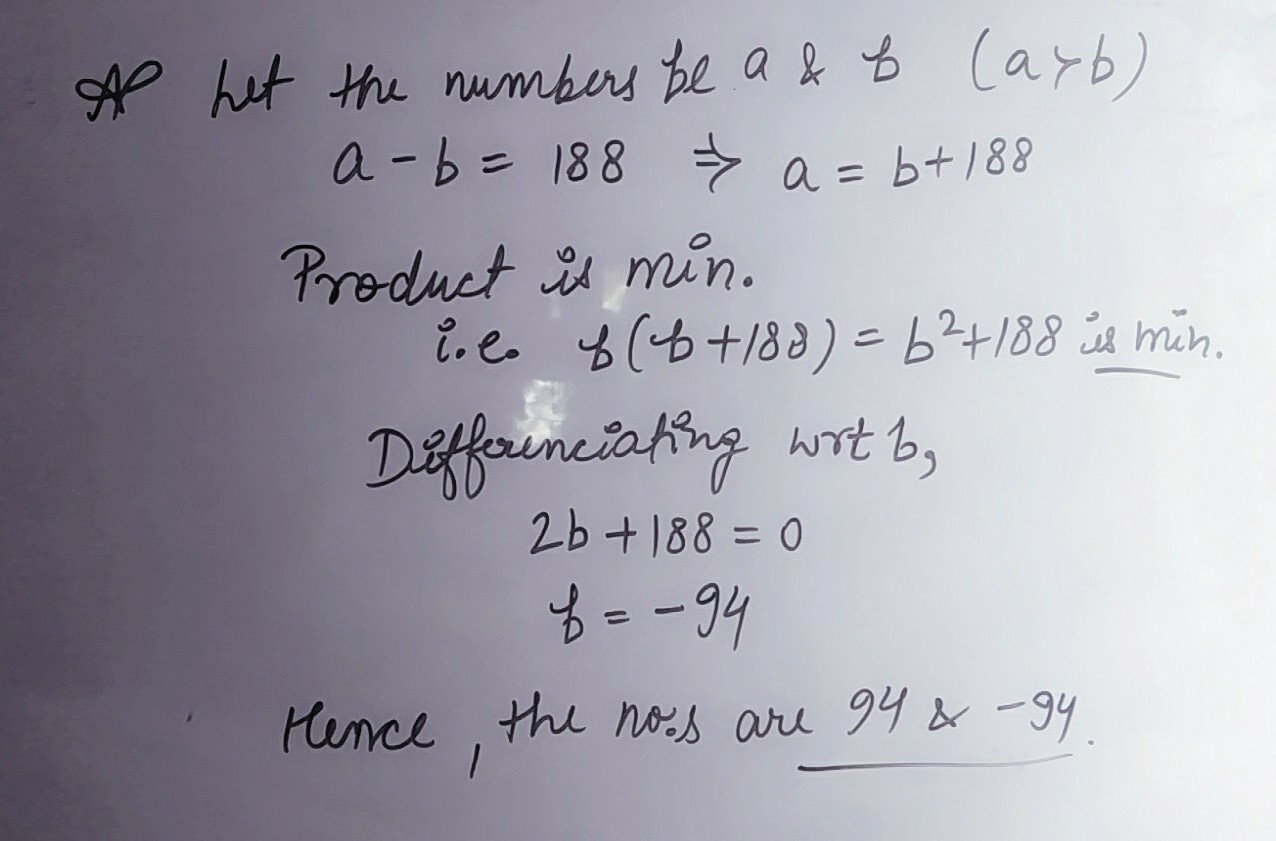 Let the numbers be a & b (a>b)
a - b = 188 ⇒ a = b+188
Product is min.
i.e. b(b+188) = b²+188 is min.
Differenciating wrt b,
2b + 188 = 0
b = -94
Hence, the no:s are 94 & -94.